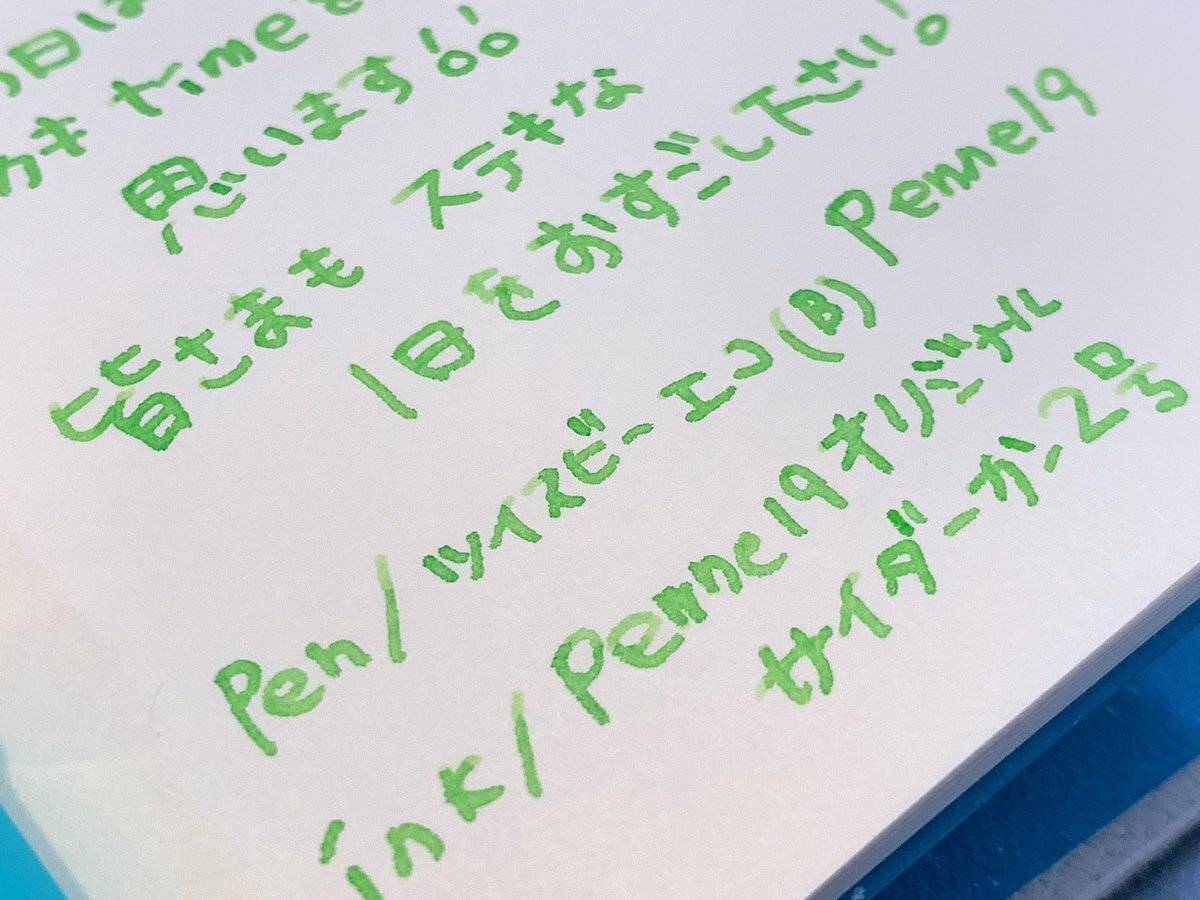 日は
カキ timeを
思います!!
皆さまも ステキな
1日をおすごし下さい!
Pen/ツイスビーエコ(B) Penne19
ink/Penne19オリジナル
サイダーか-2号